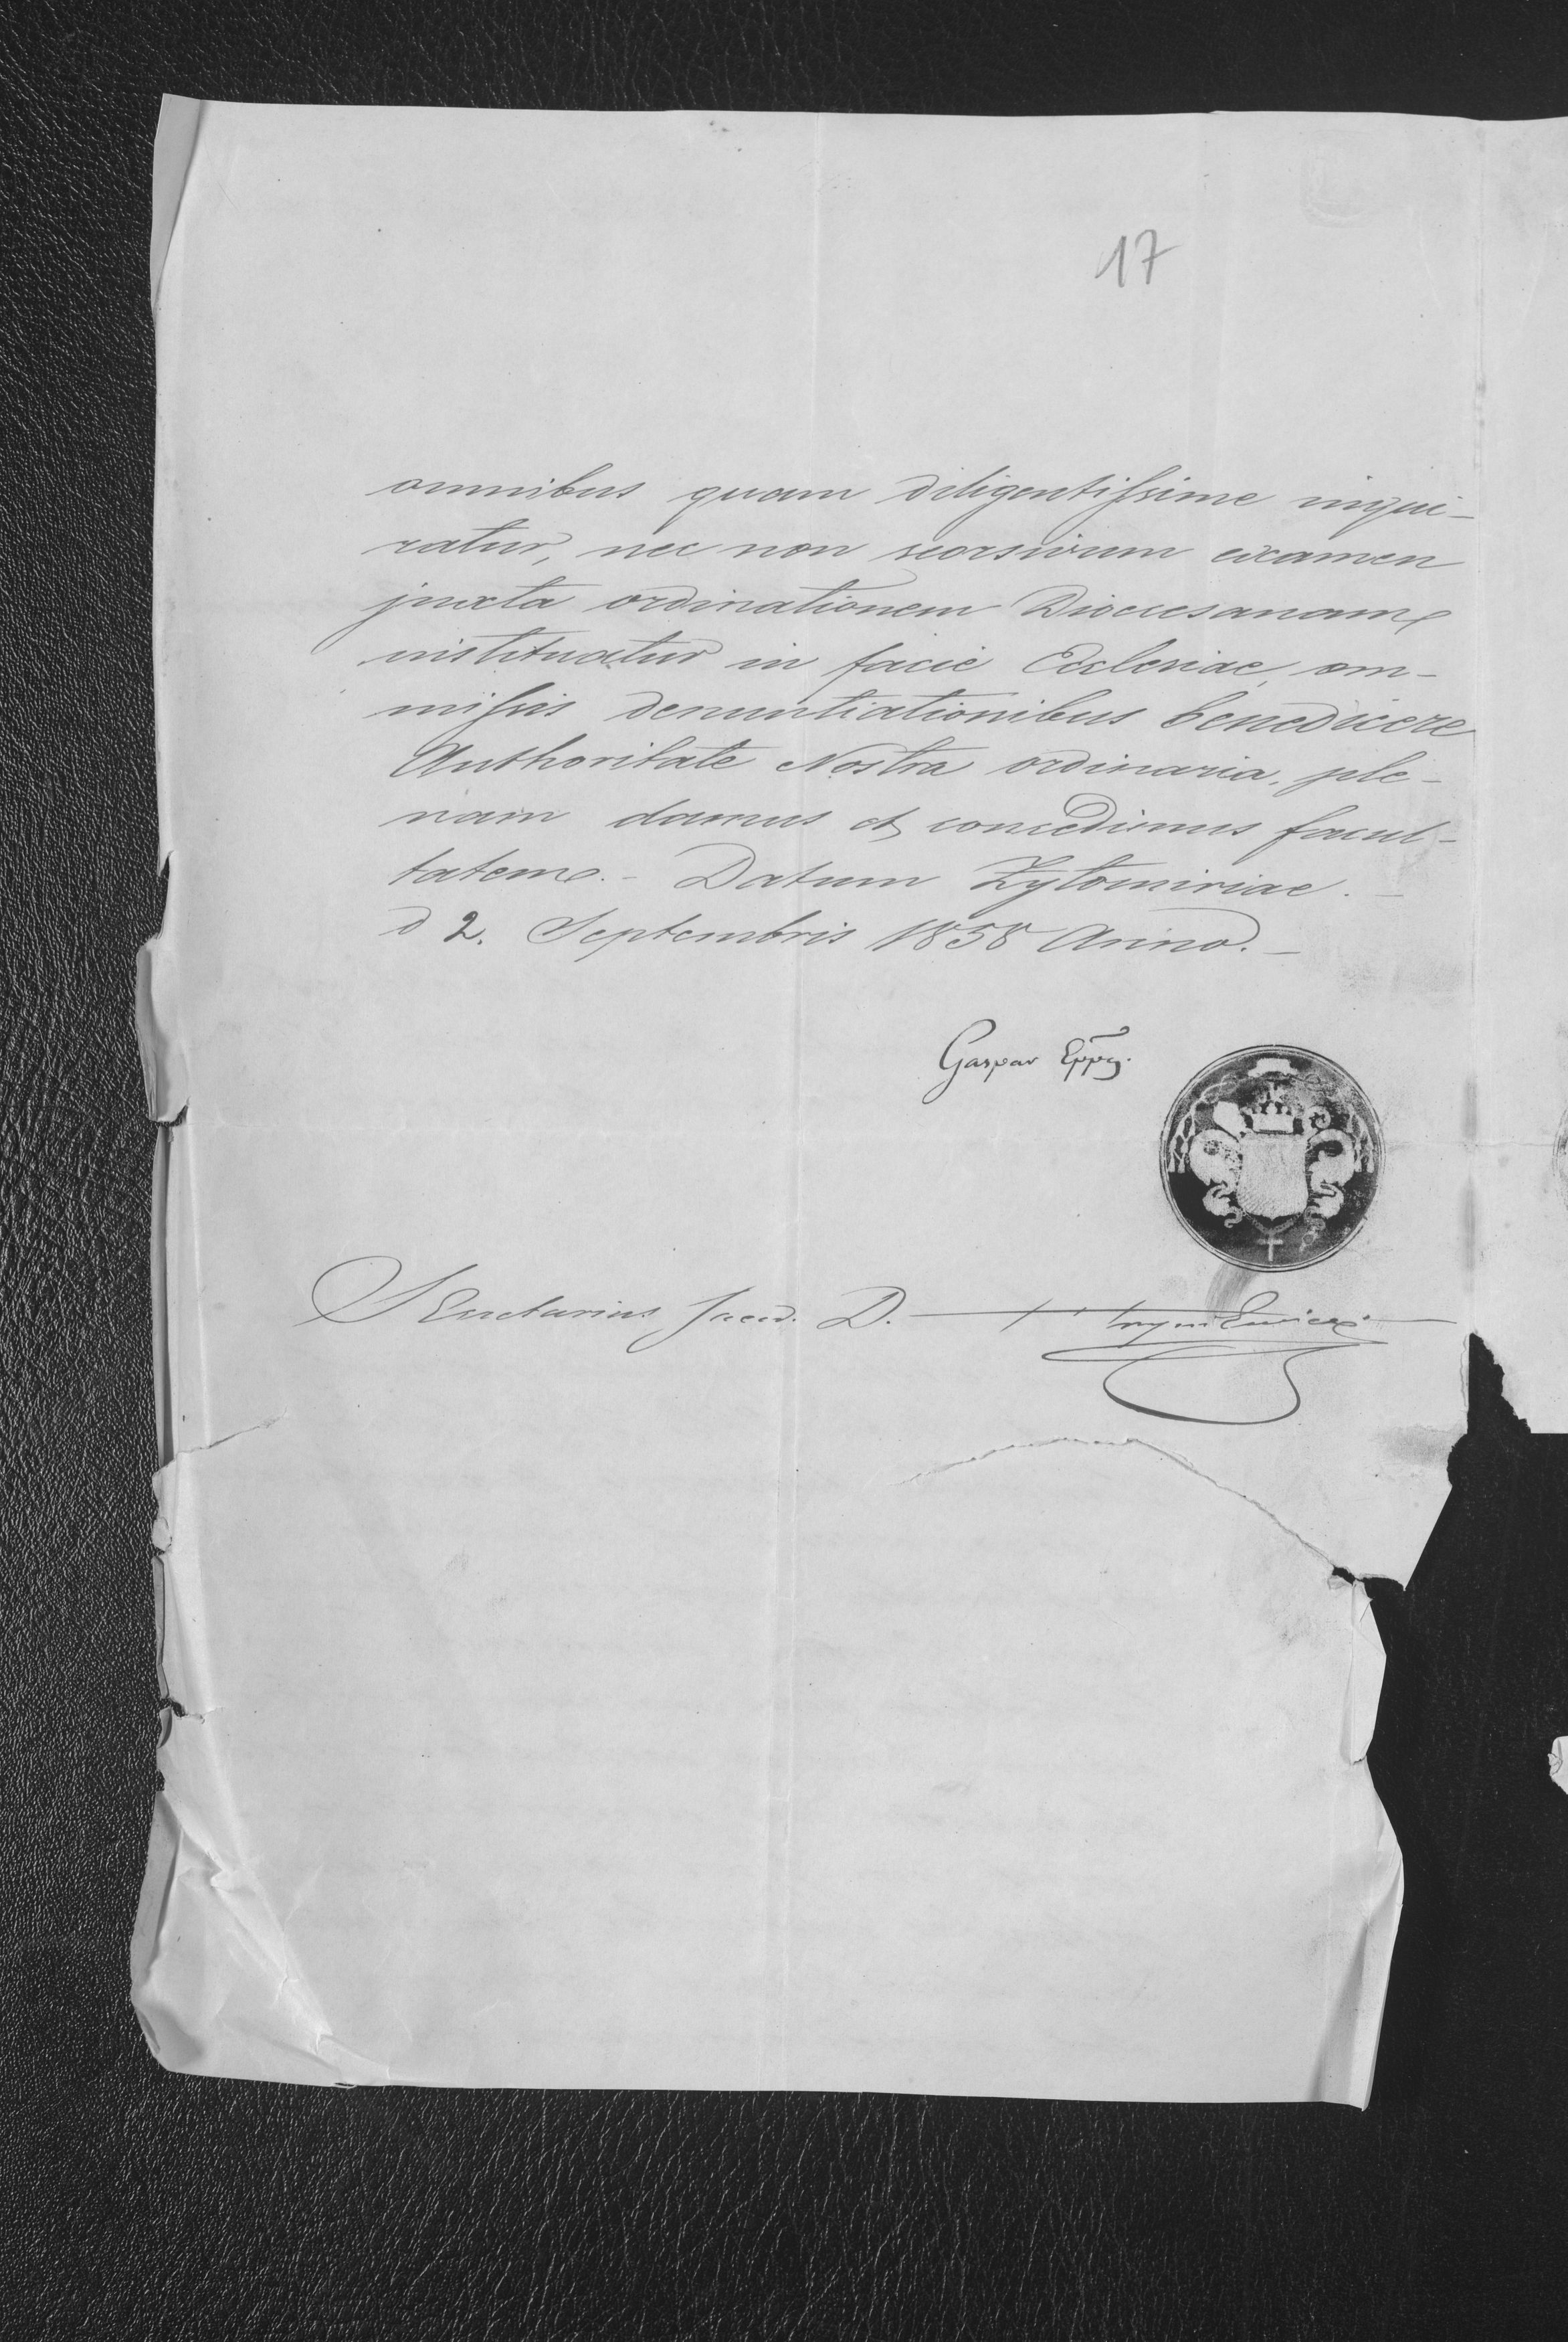 17
omnibus quam diligentissime inqui-
ratur, nec non seorsivum examen
juxta ordinationem Dioecesanam
instituatur in facie Ecclesiae, om-
missis denuntiationibus benedicere
Authoritate Nostra ordinaria, ple-
nam damus et concedimus facul-
tatem.- Datum Zytomiriae.-
d 2. Septembris 1858 Anno.-
Gaspar Eppus.
Secretarius Sacer. D.